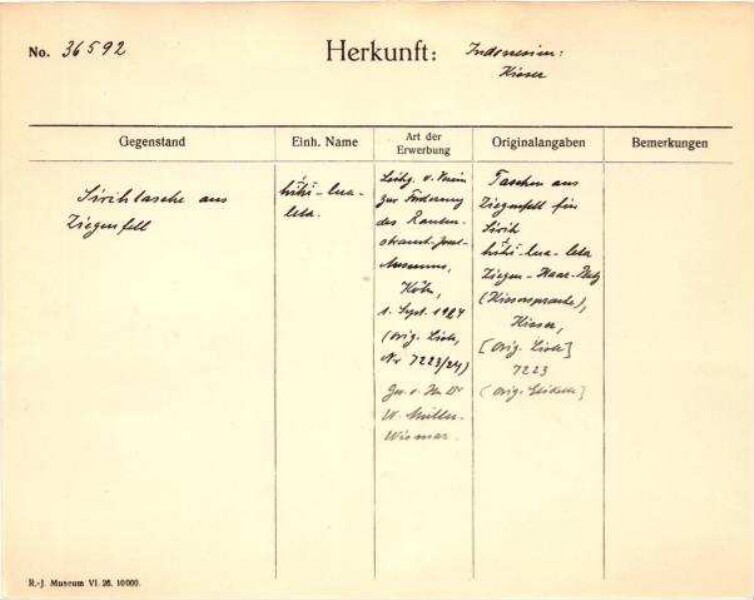 No. 36592
Herkunft: Indonesien:
Kisser
Gegenstand
Einh. Name
Art der
Erwerbung
Originalangaben
Bemerkungen
Sirihtasche aus
Ziegenfell
hihi-lua-
leta.
Leihg. v. Verein
zur Förderung
des Rauten-
strauch-Joest-
Museums,
Köln,
1. Sept. 1927
(orig. Liste,
Nr 7223/24)
Ges. v. Hn Dr
W. Müller-
Wismar.
Taschen aus
Ziegenfell für
Sirih
hihi-lua-leta
Ziegen-Haar-
(Kissersprache),
Kisser,
[Orig. Liste]
7223
(Orig. Etikett]
R.-J. Museum VI. 26. 10000.